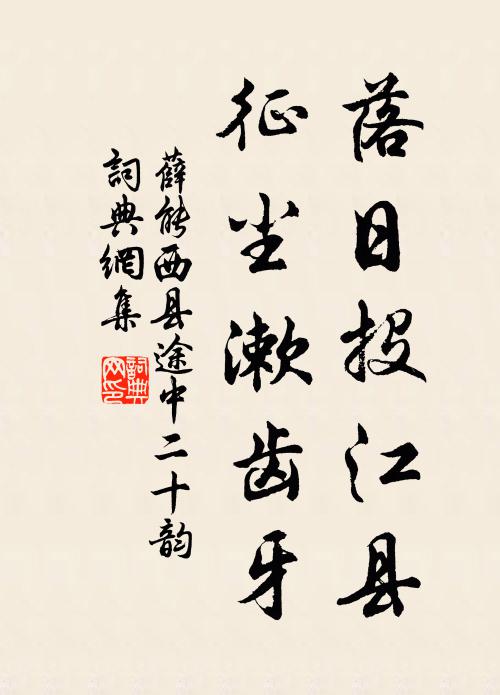 落日投江县
征尘漱齿牙
薛能西县途中二十韵
詞典網集
詞典网印